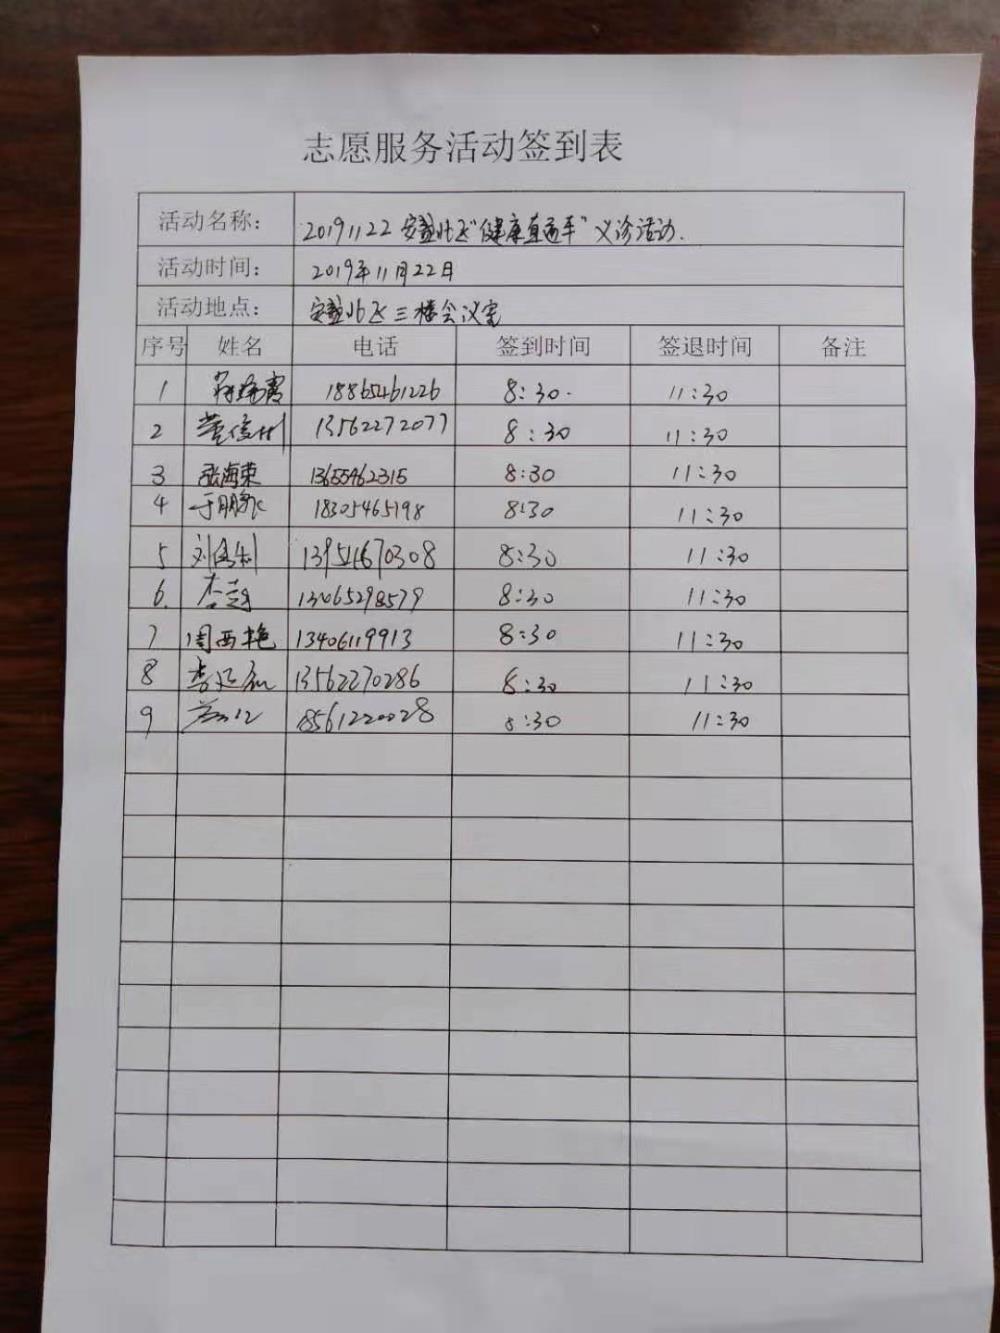 志愿服务活动签到表
活动名称： 20191122 安盘北区“健康直通车”义诊活动.
活动时间： 2019年11月22日
活动地点： 安盘北区三楼会议室
序号 姓名 电话 签到时间 签退时间 备注
1 18865461226 8:30. 11:30
2 13562272077 8:30 11:30
3 张海荣 13655462315 8:30 11:30
4 于鹏 18305465198 8:30 11:30
5 刘 670308 8:30 11:30
6. 13065298579 8:30 11:30
7 周西艳 13406119913 8:30 11:30
8 李延 13562270286 8:30 11:30
9 18561220028 8:30 11:30